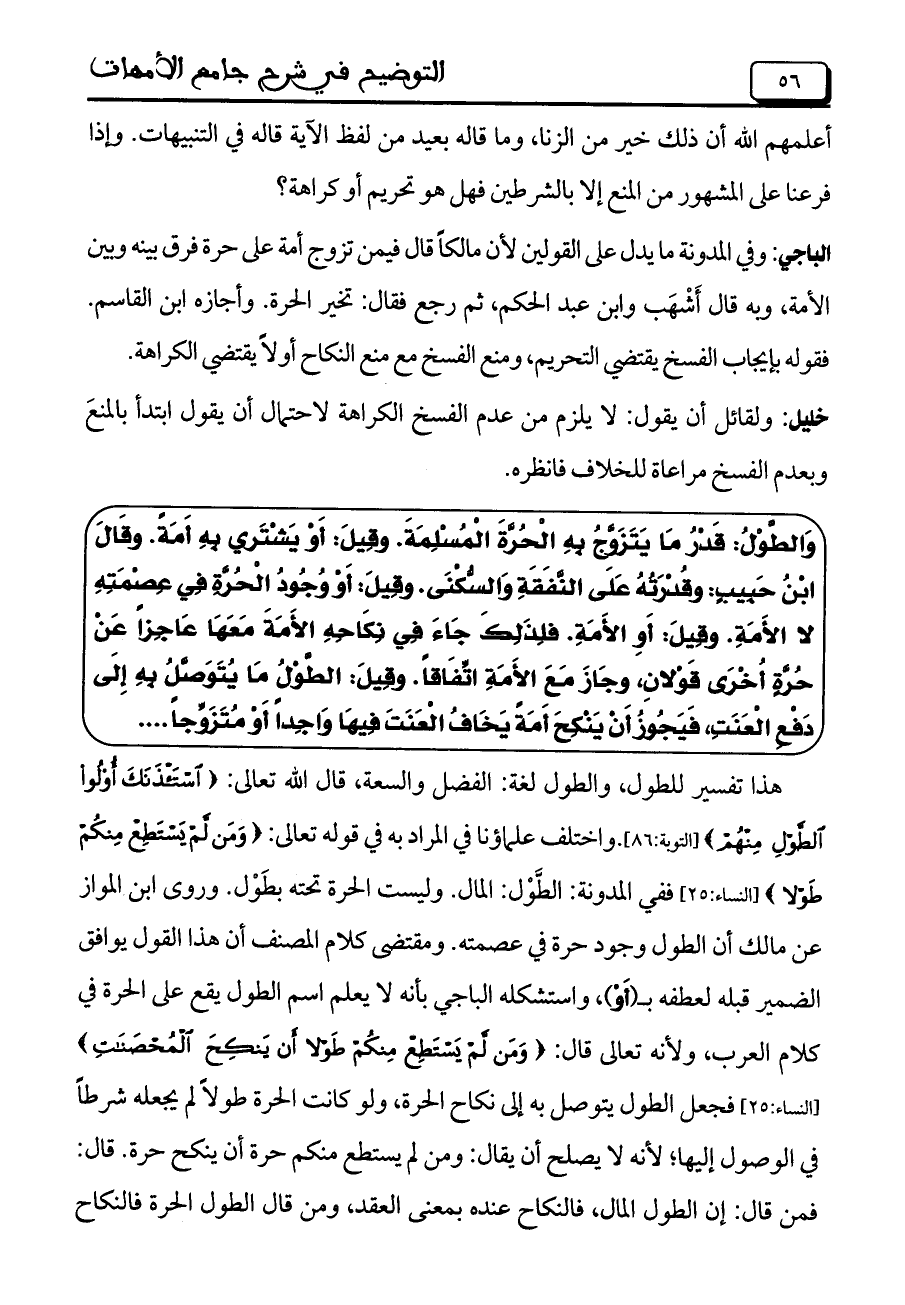 ٥٦
التوضيح في شرح جامع الأمهات
أعلمهم الله أن ذلك خير من الزنا، وما قاله بعيد من لفظ الآية قاله في التنبيهات. وإذا
فرعنا على المشهور من المنع إلا بالشرطين فهل هو تحريم أو كراهة؟
الباجي: وفي المدونة ما يدل على القولين لأن مالكاً قال فيمن تزوج أمة على حرة فرق بينه وبين
الأمة، وبه قال أَشْهَب وابن عبد الحكم، ثم رجع فقال: تخير الحرة. وأجازه ابن القاسم.
فقوله بإيجاب الفسخ يقتضي التحريم، ومنع الفسخ مع منع النكاح أولاً يقتضي الكراهة.
خليل: ولقائل أن يقول: لا يلزم من عدم الفسخ الكراهة لاحتمال أن يقول ابتدأ بالمنعَ
وبعدم الفسخ مراعاة للخلاف فانظره.
وَالطَّوْلُ: قَدْرُ مَا يَتَزَوَّجُ بِهِ الْحُرَّةَ الْمُسْلِمَةَ. وقِيلَ: أَوْ يَشْتَرِي بِهِ أَمَةً. وقَالَ
ابْنُ حَبِيبٍ: وقُدْرَتُهُ عَلَى النَّفَقَةِ وَالسُّكْنَى. وقِيلَ: أَوْ وُجُودُ الْحُرَّةِ فِي عِصْمَتِهِ
لا الأَمَةِ. وقِيلَ: أَوِ الأَمَةِ. فَلِذَلِكَ جَاءَ فِي نِكَاحِهِ الأَمَةَ مَعَهَا عَاجِزاً عَنْ
حُرَّةٍ أُخْرَى قَوْلانِ، وجَازَ مَعَ الأَمَةِ اتِّفَاقاً. وقِيلَ: الطَّوْلُ مَا يُتَوَصَّلُ بِهِ إِلَى
دَفْعِ الْعَنَتِ، فَيَجُوزُ أَنْ يَنْكِحَ أَمَةً يَخَافُ الْعَنَتَ فِيهَا وَاجِداً أَوْ مُتَزَوِّجاً....
هذا تفسير للطول، والطول لغة: الفضل والسعة، قال الله تعالى: ﴿ ٱسْتَـْٔذَنَكَ أُوْلُواْ
ٱلطَّوْلِ مِنْهُمْ ﴾ [التوبة:٨٦]. واختلف علماؤنا في المراد به في قوله تعالى: ﴿ وَمَن لَّمْ يَسْتَطِعْ مِنكُمْ
طَوْلًا ﴾ [النساء:٢٥] ففي المدونة: الطَّوْل: المال. وليست الحرة تحته بطَوْل. وروى ابن المواز
عن مالك أن الطول وجود حرة في عصمته. ومقتضى كلام المصنف أن هذا القول يوافق
الضمير قبله لعطفه بـ(أَوْ)، واستشكله الباجي بأنه لا يعلم اسم الطول يقع على الحرة في
كلام العرب، ولأنه تعالى قال: ﴿ وَمَن لَّمْ يَسْتَطِعْ مِنكُمْ طَوْلًا أَن يَنكِحَ ٱلْمُحْصَنَٰتِ ﴾
[النساء:٢٥] فجعل الطول يتوصل به إلى نكاح الحرة، ولو كانت الحرة طولاً لم يجعله شرطاً
في الوصول إليها؛ لأنه لا يصلح أن يقال: ومن لم يستطع منكم حرة أن ينكح حرة. قال:
فمن قال: إن الطول المال، فالنكاح عنده بمعنى العقد، ومن قال الطول الحرة فالنكاح